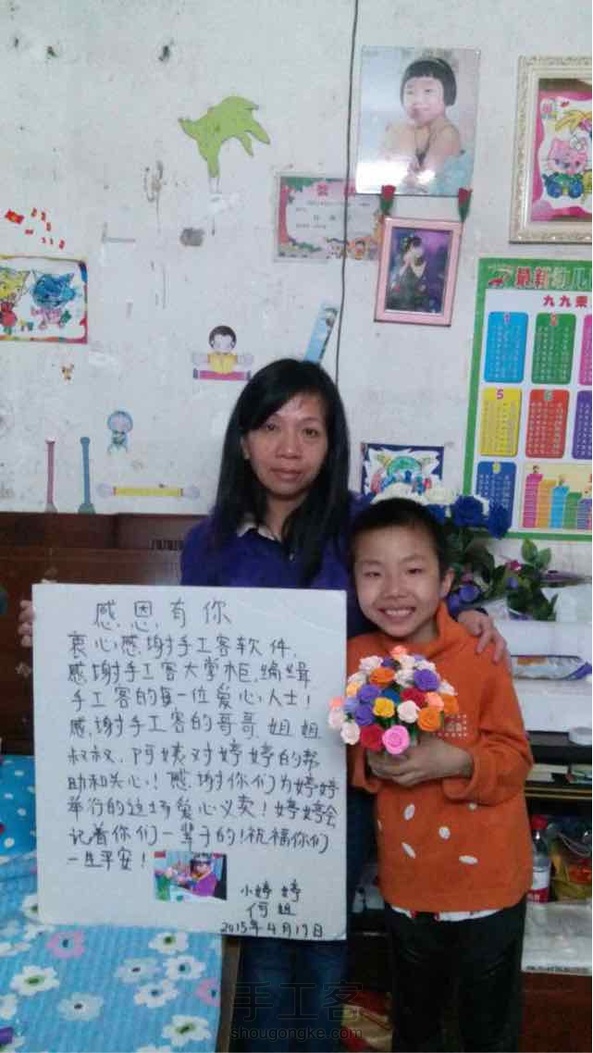 最新幼儿
九九乘
感恩有你
衷心感谢手工客软件，
感谢手工客大掌柜、编缉
手工客的每一位爱心人士！
感谢手工客的哥哥、姐姐
叔叔、阿姨对婷婷的帮
助和关心！感谢你们为婷婷
举行的这场爱心义卖！婷婷会
记着你们一辈子的！祝福你们
一生平安！
小婷婷
何姐
2015年4月19日
手工客
shougongke.com